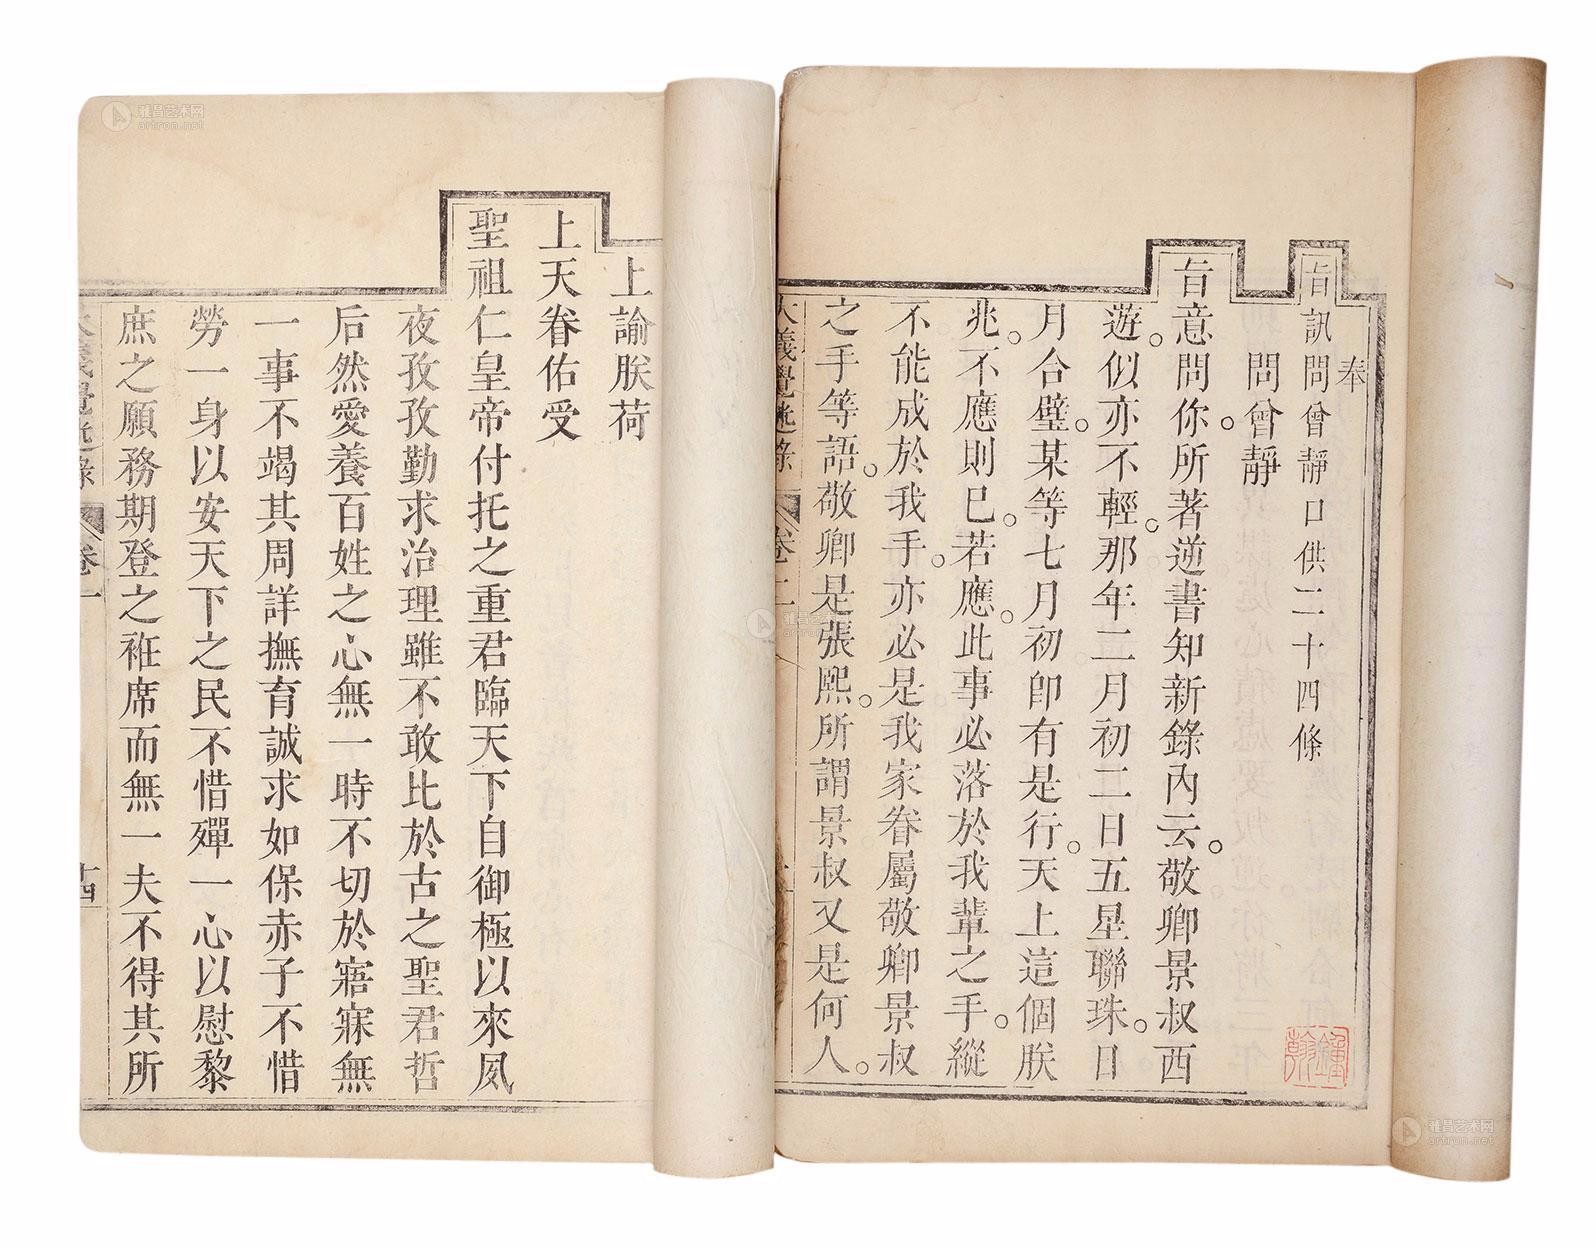 奉
旨訊問曾靜口供二十四條
問曾靜
旨意問你所著逆書知新錄內云。敬卿景叔西
遊。似亦不輕。那年二月初二日五星聯珠。日
月合璧。某等七月初卽有是行。天上這個朕
兆。不應則已。若應。此事必落於我輩之手。縱
不能成於我手。亦必是我家眷屬敬卿景叔
之手等語。敬卿是張熙。所謂景叔又是何人。
大義覺迷錄 卷二
上諭朕荷
上天眷佑受
聖祖仁皇帝付托之重君臨天下自御極以來夙
夜孜孜勤求治理雖不敢比於古之聖君哲
后然愛養百姓之心無一時不切於寤寐無
一事不竭其周詳撫育誠求如保赤子不惜
勞一身以安天下之民不惜殫一心以慰黎
庶之願務期登之袵席而無一夫不得其所
大義覺迷錄 卷一 十四
雅昌艺术网
artron.net
雅昌艺术网
artron.net